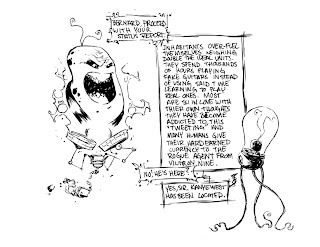 BERNARD, PROCEED
WITH YOUR
STATUS REPORT.
INHABITANTS OVER-FUEL
THEMSELVES, WEIGHING
DOUBLE THE IDEAL UNITS.
THEY SPEND THOUSANDS
OF HOURS PLAYING
FAKE GUITARS INSTEAD
OF USING SAID TIME
LEARNING TO PLAY
REAL ONES. MOST
ARE SO IN LOVE WITH
THEIR OWN THOUGHTS
THEY HAVE BECOME
ADDICTED TO THIS
"TWEETING" AND
MANY HUMANS GIVE
THEIR HARD EARNED
CURRENCY TO THE
ROGUE AGENT FROM
NINE.
NO, HE'S HERE?
YES, SIR. KANYE WEST
HAS BEEN LOCATED.